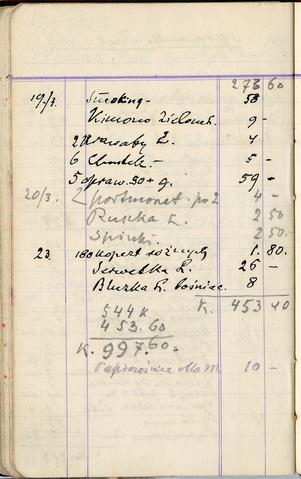 273 60
19/3. Smoking - 50
Kimono zielonk. 9 -
2 Krawaty L. 4
6 Chustek - 5 -
5 opraw. 30+g. 59 -
20/3. 2 portmonet. po 2 4 -
Ruszka L. 2 50
Spinki. 2 50.
23. 180 kopert 1. 80.
Serwetka L. 26 -
Bluzka L. bośniac. 8
544 K K. 453 40
453.60
K. 997.60.
Papierośnica dla M. 10 -